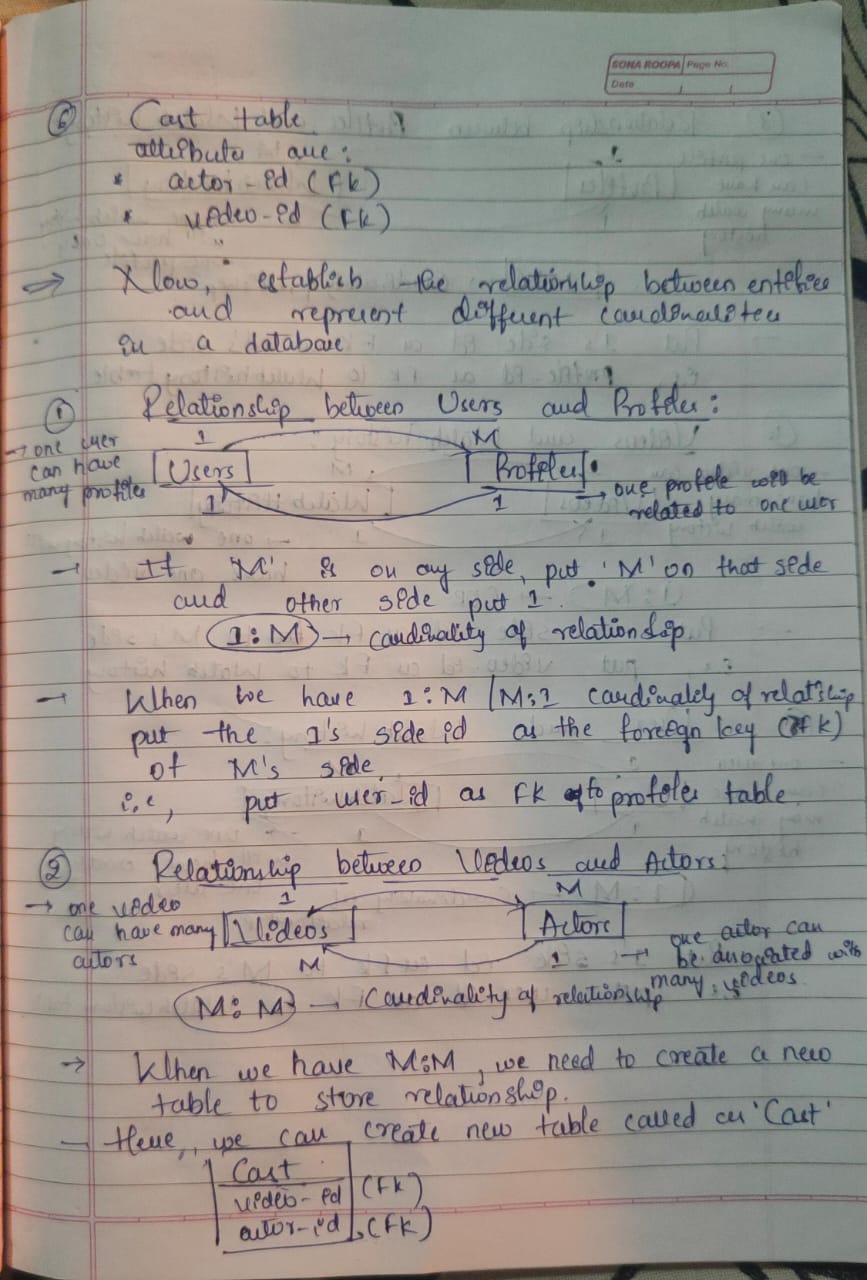 SONA ROOPA Page No.
Date
⑥ Cast table
attributes are:
* actor-id (FK)
* video-id (FK)
⇒ Now, establish the relationship between entities
and represent different cardinalities
in a database
① Relationship between Users and Profiles:
1 M
→ one user can have many profiles
Users Profiles
1 1
→ one profile will be related to one user
→ If 'M' is on any side, put 'M' on that side
and other side put 1.
1:M → cardinality of relationship
→ When we have 1:M / M:1 cardinality of relatship
put the 1's side id as the foreign key (FK)
of M's side
i.e, put user-id as FK to profiles table
② Relationship between Videos and Actors:
1 M
→ one video can have many actors
Videos Actors
M 1
→ one actor can be associated with many videos
M:M → Cardinality of relationship
→ When we have M:M, we need to create a new
table to store relationship.
→ Here, we can create new table called as 'Cast'
Cast
video-id (FK)
actor-id (FK)